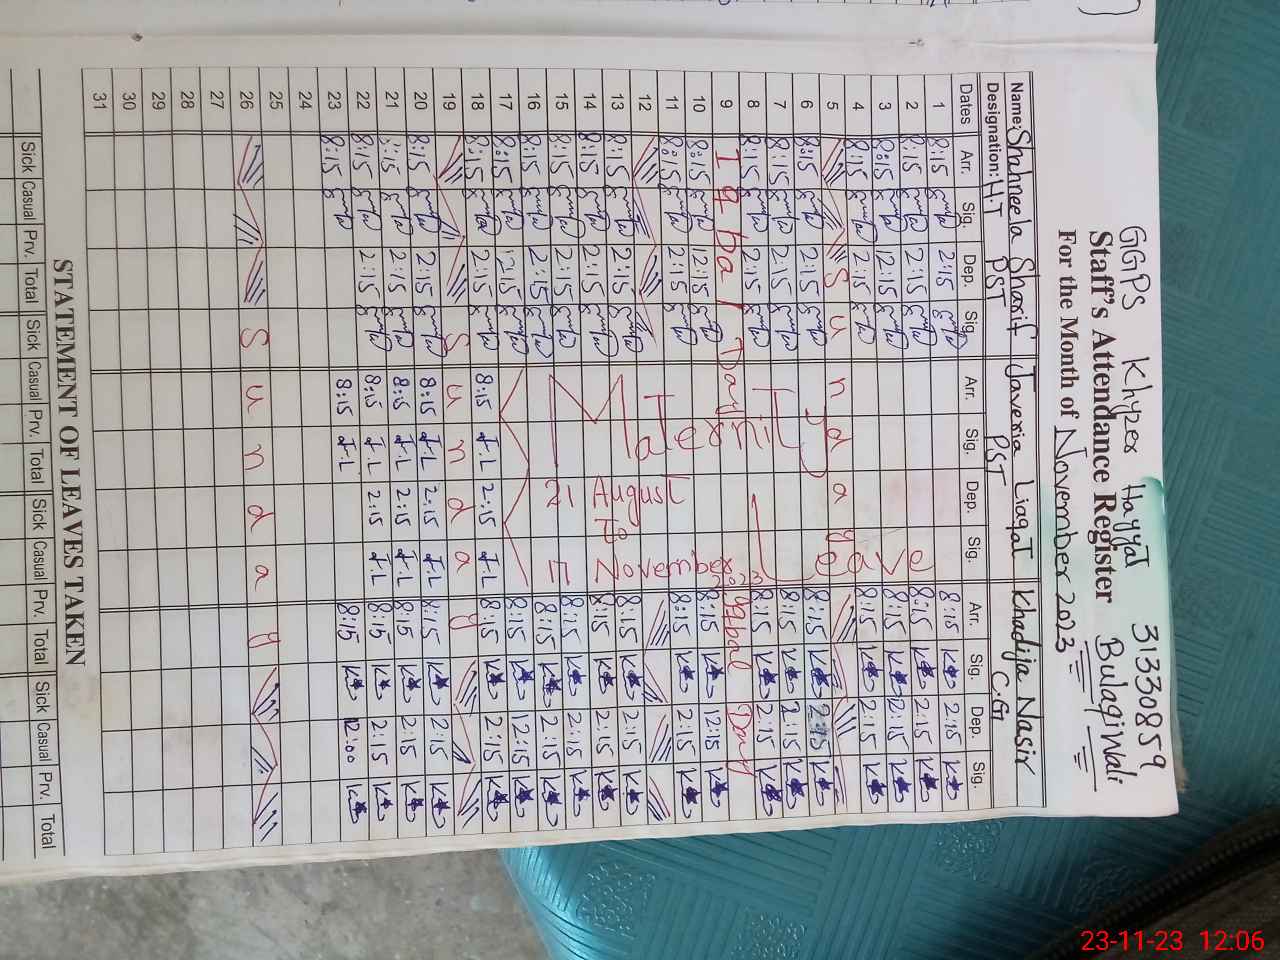 GGPS Khyzer Hayyat 31330859
Staff's Attendance Register BulaqiWali
For the Month of November 2023
Name: Shahneela Sharif Javeria Liaqat Khadija Nasir
Designation: H.T PST PST C.G
Dates Arr. Sig. Dep. Sig. Arr. Sig. Dep. Sig. Arr. Sig. Dep. Sig.
1 8:15 2:15 8:15 2:15
2 8:15 2:15 8:15 2:15
3 8:15 12:15 8:15 12:15
4 8:15 2:15 8:15 2:15
5 Sunday
6 8:15 2:15 8:15 2:15
7 8:15 2:15 8:15 2:15
8 8:15 2:15 8:15 2:15
9 Iqbal Day Iqbal Day
10 8:15 12:15 8:15 12:15
11 8:15 2:15 8:15 2:15
12
13 8:15 2:15 8:15 2:15
14 8:15 2:15 8:15 2:15
15 8:15 2:15 8:15 2:15
16 8:15 2:15 8:15 2:15
17 8:15 12:15 8:15 12:15
Maternity Leave
21 August
To
17 November 2023
18 8:15 2:15 8:15 J.L 2:15 J.L 8:15 2:15
19 Sunday
20 8:15 2:15 8:15 J.L 2:15 J.L 8:15 2:15
21 8:15 2:15 8:15 J.L 2:15 J.L 8:15 2:15
22 8:15 2:15 8:15 J.L 2:15 J.L 8:15 2:15
23 8:15 8:15 J.L 8:15 12:00
24
25
26 Sunday
27
28
29
30
31
STATEMENT OF LEAVES TAKEN
Sick Casual Prv. Total Sick Casual Prv. Total Sick Casual Prv. Total Sick Casual Prv. Total
23-11-23 12:06